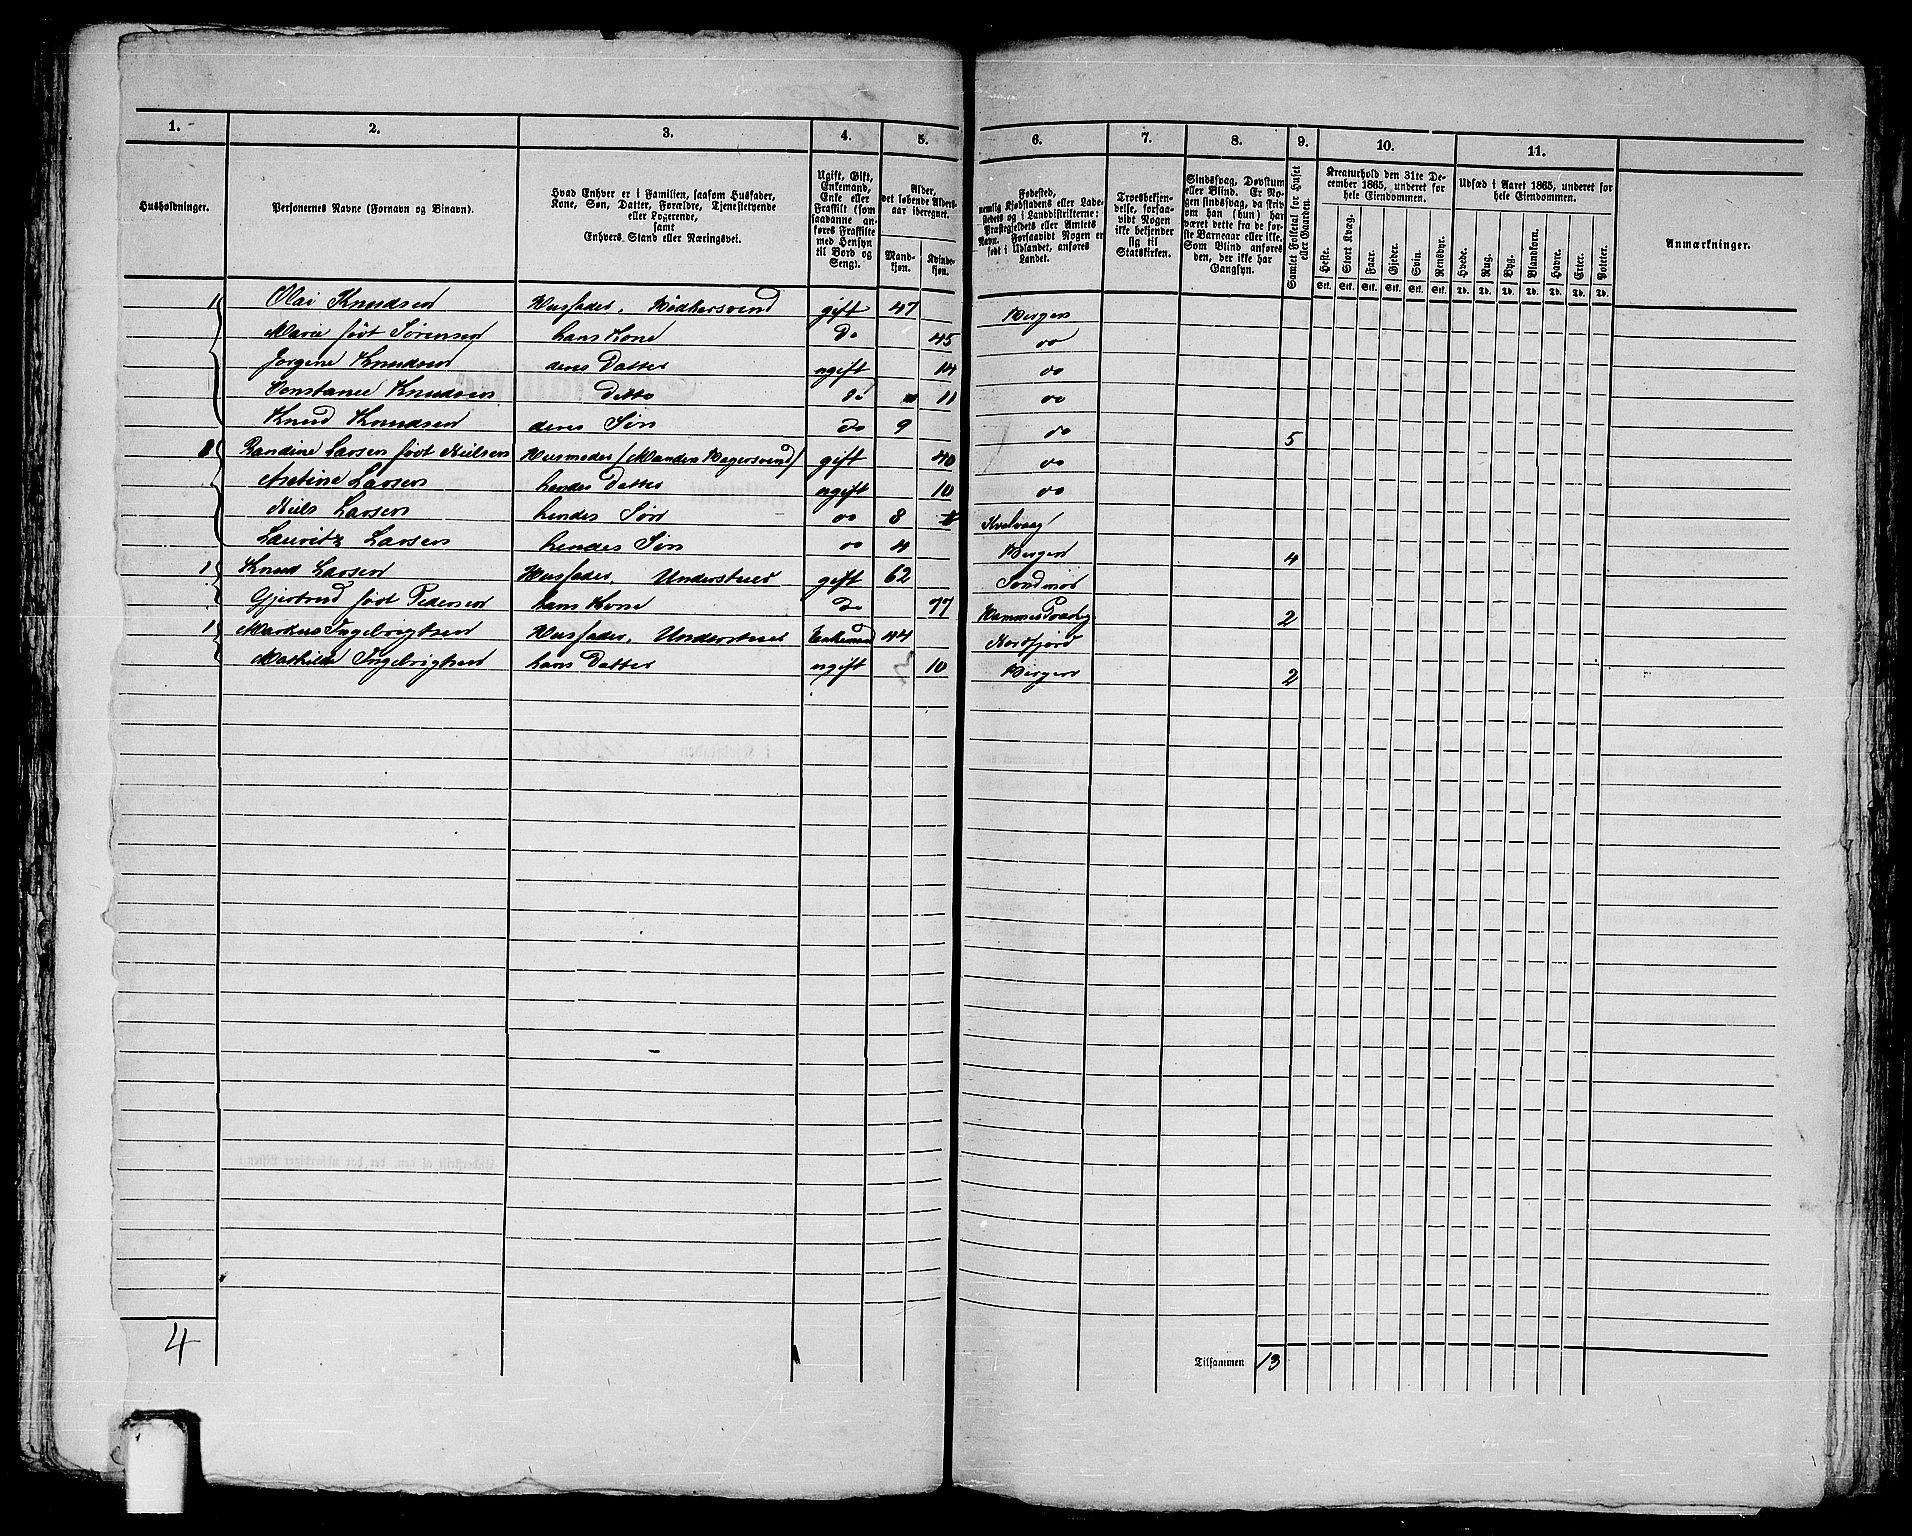 1. 2. 3. 4. 5. 6. 7. 8. 9. 10. 11.
Husholdninger.
Personernes Navne (Fornavn og Binavn).
Hvad Enhver er i Familien, saasom Husfader,
Kone, Søn, Datter, Forældre, Tjenestetyende
eller Logerende,
samt
Enhvers Stand eller Næringsvei.
Ugift, Gift,
Enkemand,
Enke eller
Fraskilt (som
saadanne an-
føres Fraskilte
med Hensyn
til Bord og
Seng).
Alder,
det løbende Alders-
aar iberegnet.
Mand-
kjøn.
Kvinde-
kjøn.
Fødested,
nemlig Kjøbstadens eller Lade-
stedets og i Landdistrikterne:
Præstegjeldets eller Amtets
Navn. Forsaavidt Nogen er
født i Udlandet, anføres
Landet.
Troesbekjen-
delse, forsaa-
vidt Nogen
ikke bekjender
sig til
Statskirken.
Sindssvag, Døvstum
eller Blind. Er No-
gen sindssvag, da skriv
om han (hun) har
været dette fra de før-
ste Barneaar eller ikke.
Som Blind anføres
den, der ikke har
Gangsyn.
Samlet Folketal for Huset
eller Gaarden.
Kreaturhold den 31te De-
cember 1865, underet for
hele Eiendommen.
Heste. Stort Kvæg. Faar. Gjeder. Svin. Rensdyr.
Stk. Stk. Stk. Stk. Stk. Stk.
Udsæd i Aaret 1865, underet for
hele Eiendommen.
Hvede. Rug. Byg. Blandkorn. Havre. Erter. Poteter.
Td. Td. Td. Td. Td. Td. Td.
Anmærkninger.
1 Olai Knudsen Husfader, Bødkersvend gift 47 Bergen
Marie født Sørensen hans Kone do 45 do
Jorgine Knudsen deres Datter ugift 14 do
Constance Knudsen Ditto do 11 do
Knud Knudsen deres Søn do 9 do 5
1 Randine Larsen født Nielsen Husmoder (Manden Bagersvend) gift 40 do
Larsen hendes Datter ugift 10 do
Niels Larsen hendes Søn do 8 Kvalvaag
Lauritz Larsen hendes Søn do 4 Bergen 4
1 Knud Larsen Husfader, Understøttet gift 62 Søndmør
Gjertrud født Pedersen hans Kone do 77 2
1 Markus Ingebrigtsen Husfader, Understøttet Enkemand 44 Nordfjord
Mathilde Ingebrigtsen hans Datter ugift 10 Bergen 2
4
Tilsammen 13